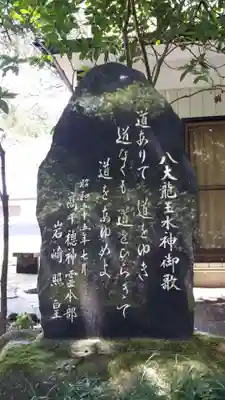 八大龍王水神御歌
道ありて道をゆき
道なくも道をひらきて
道をあゆめよ
昭和五十五年七月
高千穂神霊本部
岩崎照皇